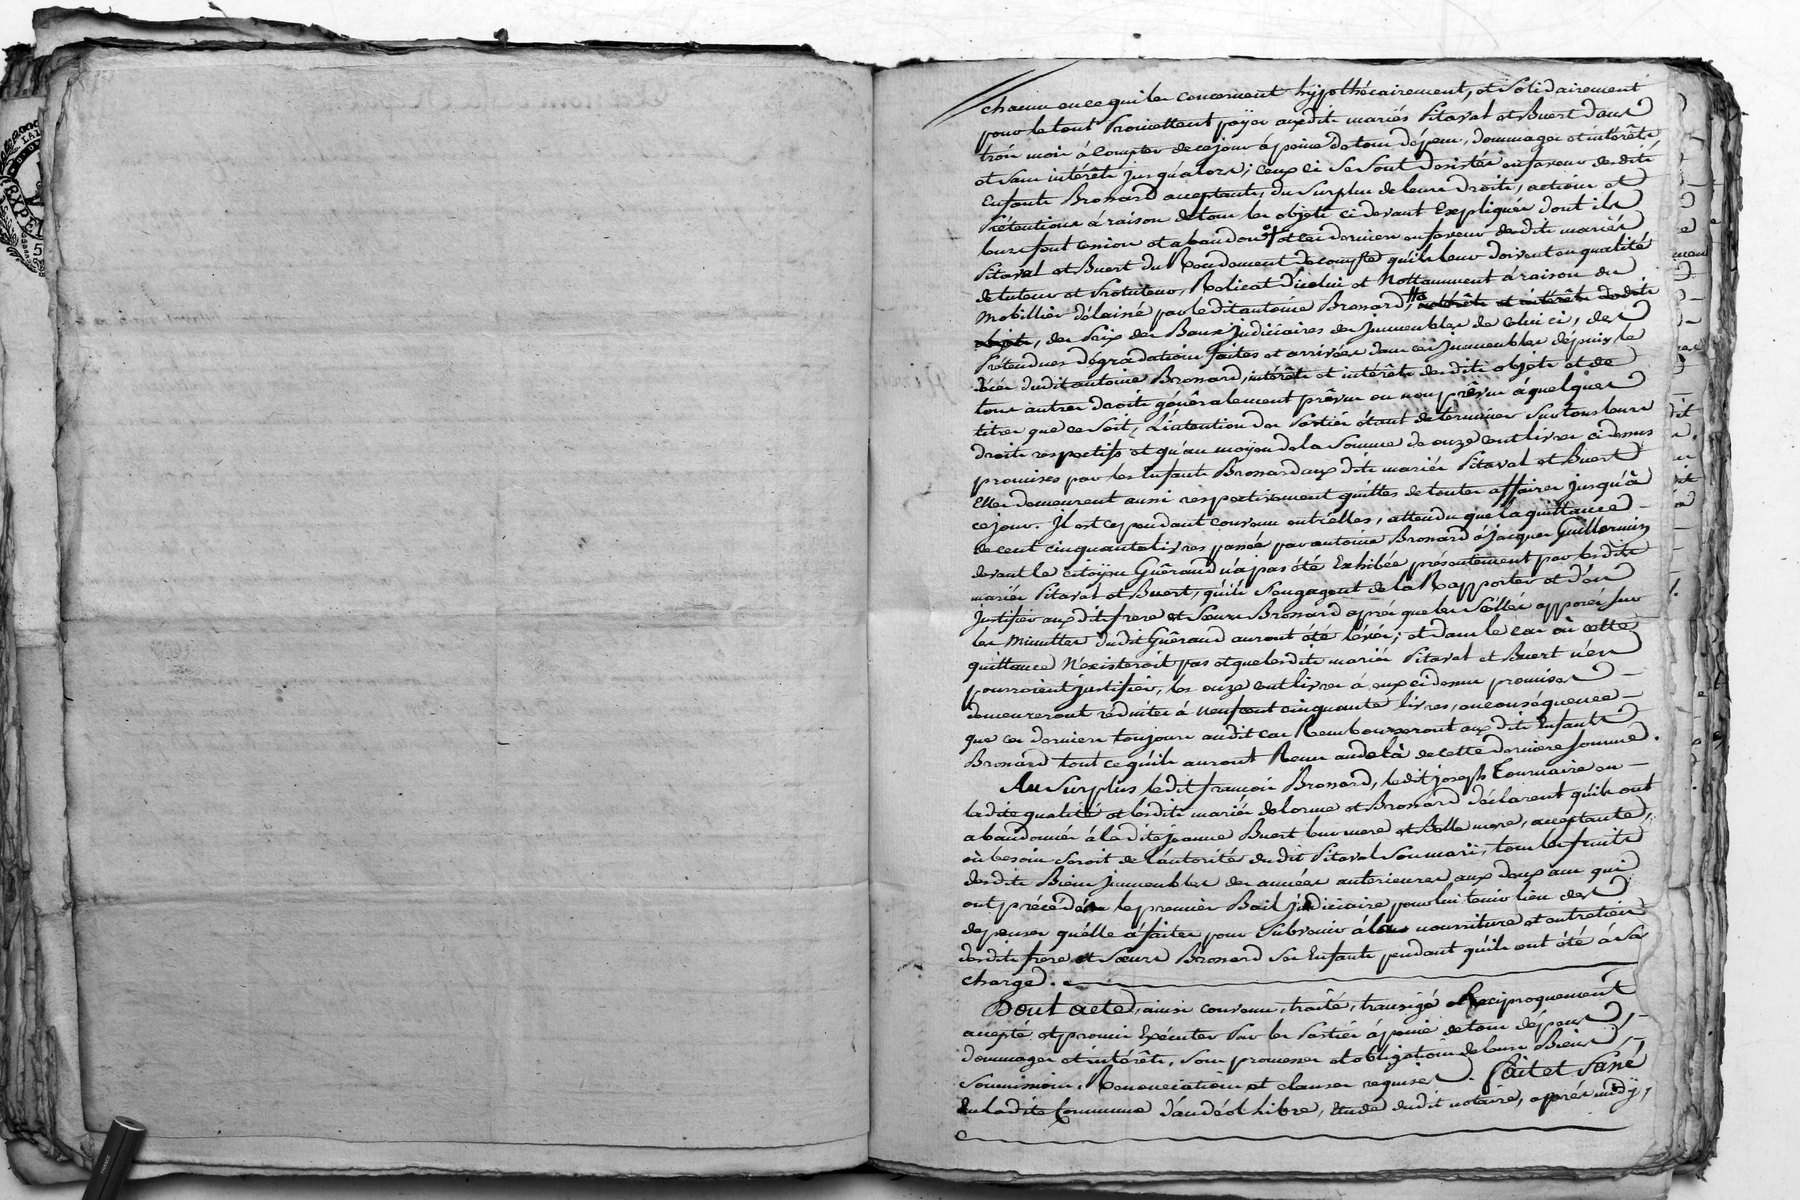 chacun en ce qui les concernent hypothécairement, et solidairement
pour le tout Promettent payer auxdits mariés Pitaval et Buert dans
trois mois à compter de ce jour à peine de tous dépens, dommages et intérêts
et sans intérêts jusqu'alors; ceux ci se sont desistés en faveur desdits
Enfants Bronard acceptants, du surplus de leurs droits, actions et
Prétentions à raison de tous les objets ci devant Expliqués dont ils
leurs font cession et abandon et ces derniers en faveur desdits mariés
Pitaval et Buert du Rendement de compte qu'ils leur doivent en qualité
de tuteur et Protuteur, Relicat d'icelui et Nottamment à raison du
Mobillier délaissé par ledit antoine Bronard, intérêts et intérêts desdits
objets, des Prix des Baux judiciaires des immeubles de celui ci, des
Prétendues dégradations faites et arrivées dans ces immeubles dépuis le
décès dudit antoine Bronard, intérêts et intérêts desdits objets et de
tous autres droits générallement prévus ou non prévus à quelques
titres que ce soit, L'intention des Parties étant de terminer sur tous leurs
droits respectifs et qu'au moyen de la somme de onze cent livres ci dessus
promises par les Enfants Bronard auxdits mariés Pitaval et Buert
Elles demeurent aussi respectivement quittes de toutes affaires jusqu'à
ce jour. Il est cependant convenu entr'elles, attendu que la quittance
de cent cinquante livres passée par antoine Bronard à Jacques Guillermin
devant le citoyen Guérand n'a pas été Exhibée présentement par lesdits
mariés Pitaval et Buert, qu'ils s'engagent de la Rapporter et d'en
justifier auxdits frere et sœurs Bronard après que les scéllés apposés sur
les Minuttes dudit Guérand auront été lévés; et dans le cas où cette
quittance N'existeroit pas et que lesdits mariés Pitaval et Buert n'en
pourroient justifier, les onze cent livres à eux ci dessus promises
demeureront réduites à neuf cent cinquante livres, en conséquence
que ces derniers toujours audit cas Rembourseront auxdits Enfants
Bronard tout ce qu'ils auront Reçu au delà de cette derniere somme.
Au surplus ledit françois Bronard, ledit joseph Tournaire en
ladite qualité et lesdits mariés delorme et Bronard déclarent qu'ils ont
abandonnés à ladite jeanne Buert leur mere et Belle mere, acceptante,
où besoin seroit de l'autorité dudit Pitaval son mari, tous les fruits
desdits Biens immeubles des années anterieures aux deux ans qui
ont précédés le premier Bail judiciaire pour lui tenir lieu des
depenses qu'elle a faites pour subvenir à la nourriture et entretien
desdits frere et sœurs Bronard ses Enfants pendant qu'ils ont été à sa
charge.
Dont acte, ainsi convenu, traité, transigé Réciproquement
accepté et promis Exécuter par les Parties à peine de tous dépens,
dommages et intérêts, sous promesses et obligations de leurs Biens,
soumissions, Renonciations et clauses requises. Fait et Passé
En ladite Commune d'andéol libre, Etude dudit notaire, après midy,